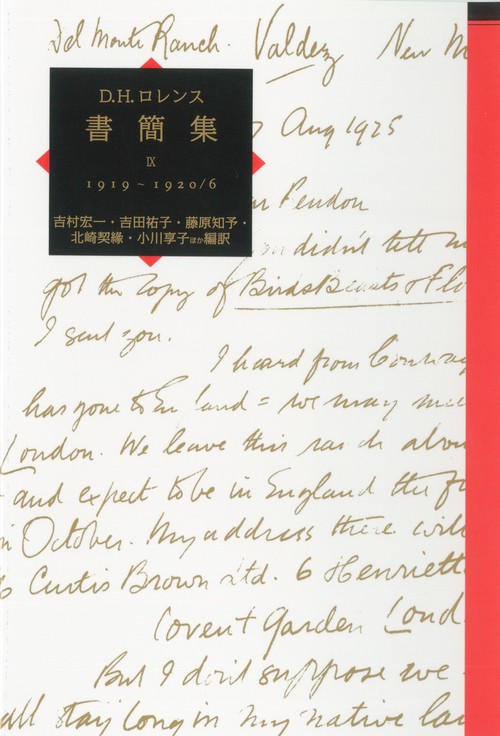 Del Monte Ranch. Valdez New M
D.H.ロレンス
書簡集
IX
1919～1920/6
吉村宏一・吉田祐子・藤原知予・
北崎契縁・小川享子ほか編訳
7 Aug 1925
Pendon
didn't tell m
got the copy of Birds Beasts & Flo
I sent you.
I heard from Conway
has gone to En land = we may mee
London. We leave this ran ch abou
and expect to be in England the fi
in October. My address there will
Curtis Brown Ltd. 6 Henriett
Covent Garden Lond
But I don't suppose we
all stay long in my native la